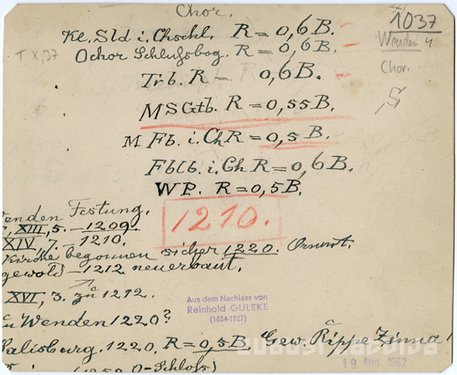 Chor.
Kl. Sld i. Chschl. R = 0,6 B.
Ochor Schlußbog. R = 0,6 B.
Trb. R = 0,6 B.
MSGtb. R = 0,55 B.
M Fb. i. Ch R = 0,5 B.
Fblb. i. Ch R = 0,6 B.
WP. R = 0,5 B.
1037
Wenden 4
Chor.
T X, 37
1210.
enden Festung.
XIII, 5. — 1209.
XIV, 7. — 1210.
Kirche begonnen sicher 1220.
gewölb — 1212 neuerbaut.
XVI, 3. zu 1212.
Wenden 1220?
Salisburg. 1220. R = 0,5 B. Gew. Rippe Zinna
O-Schloß)
Aus dem Nachlass von
Reinhold GULEKE
(1834-1927)
19 Aug. 1982